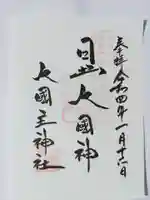 奉拝 令和四年一月十六日
日出大國神
大國主神社